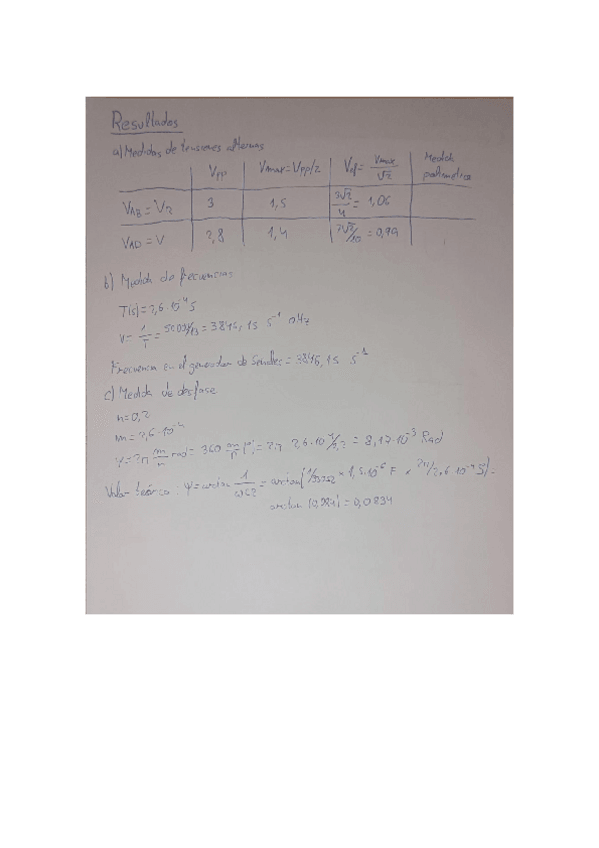 Resultados
a) Medidas de tensiones alternas
Vpp Vmax=Vpp/2 Vef= Vmax/√2 Medida polímetro
VAB = VR 3 1,5 3√2/4 = 1,06
VAD = V 2,8 1,4 7√2/10 = 0,99
b) Medida de frecuencias
T(s)=2,6·10⁻⁴ s
ν= 1/T = 50000/13 = 3846,15 s⁻¹ o Hz
Frecuencia en el generador de señales = 3846,15 s⁻¹
c) Medida de desfase
n=0,2
m= 2,6·10⁻⁴
φ=2π m/n rad = 360 m/n (º) = 2π 2,6·10⁻⁴/0,2 = 8,17·10⁻³ Rad
Valor teórico: φ=arctan 1/ = arctan( × 1,5·10⁻⁶ F × 2π/2,6·10⁻⁴ s) =
arctan = 0,0834